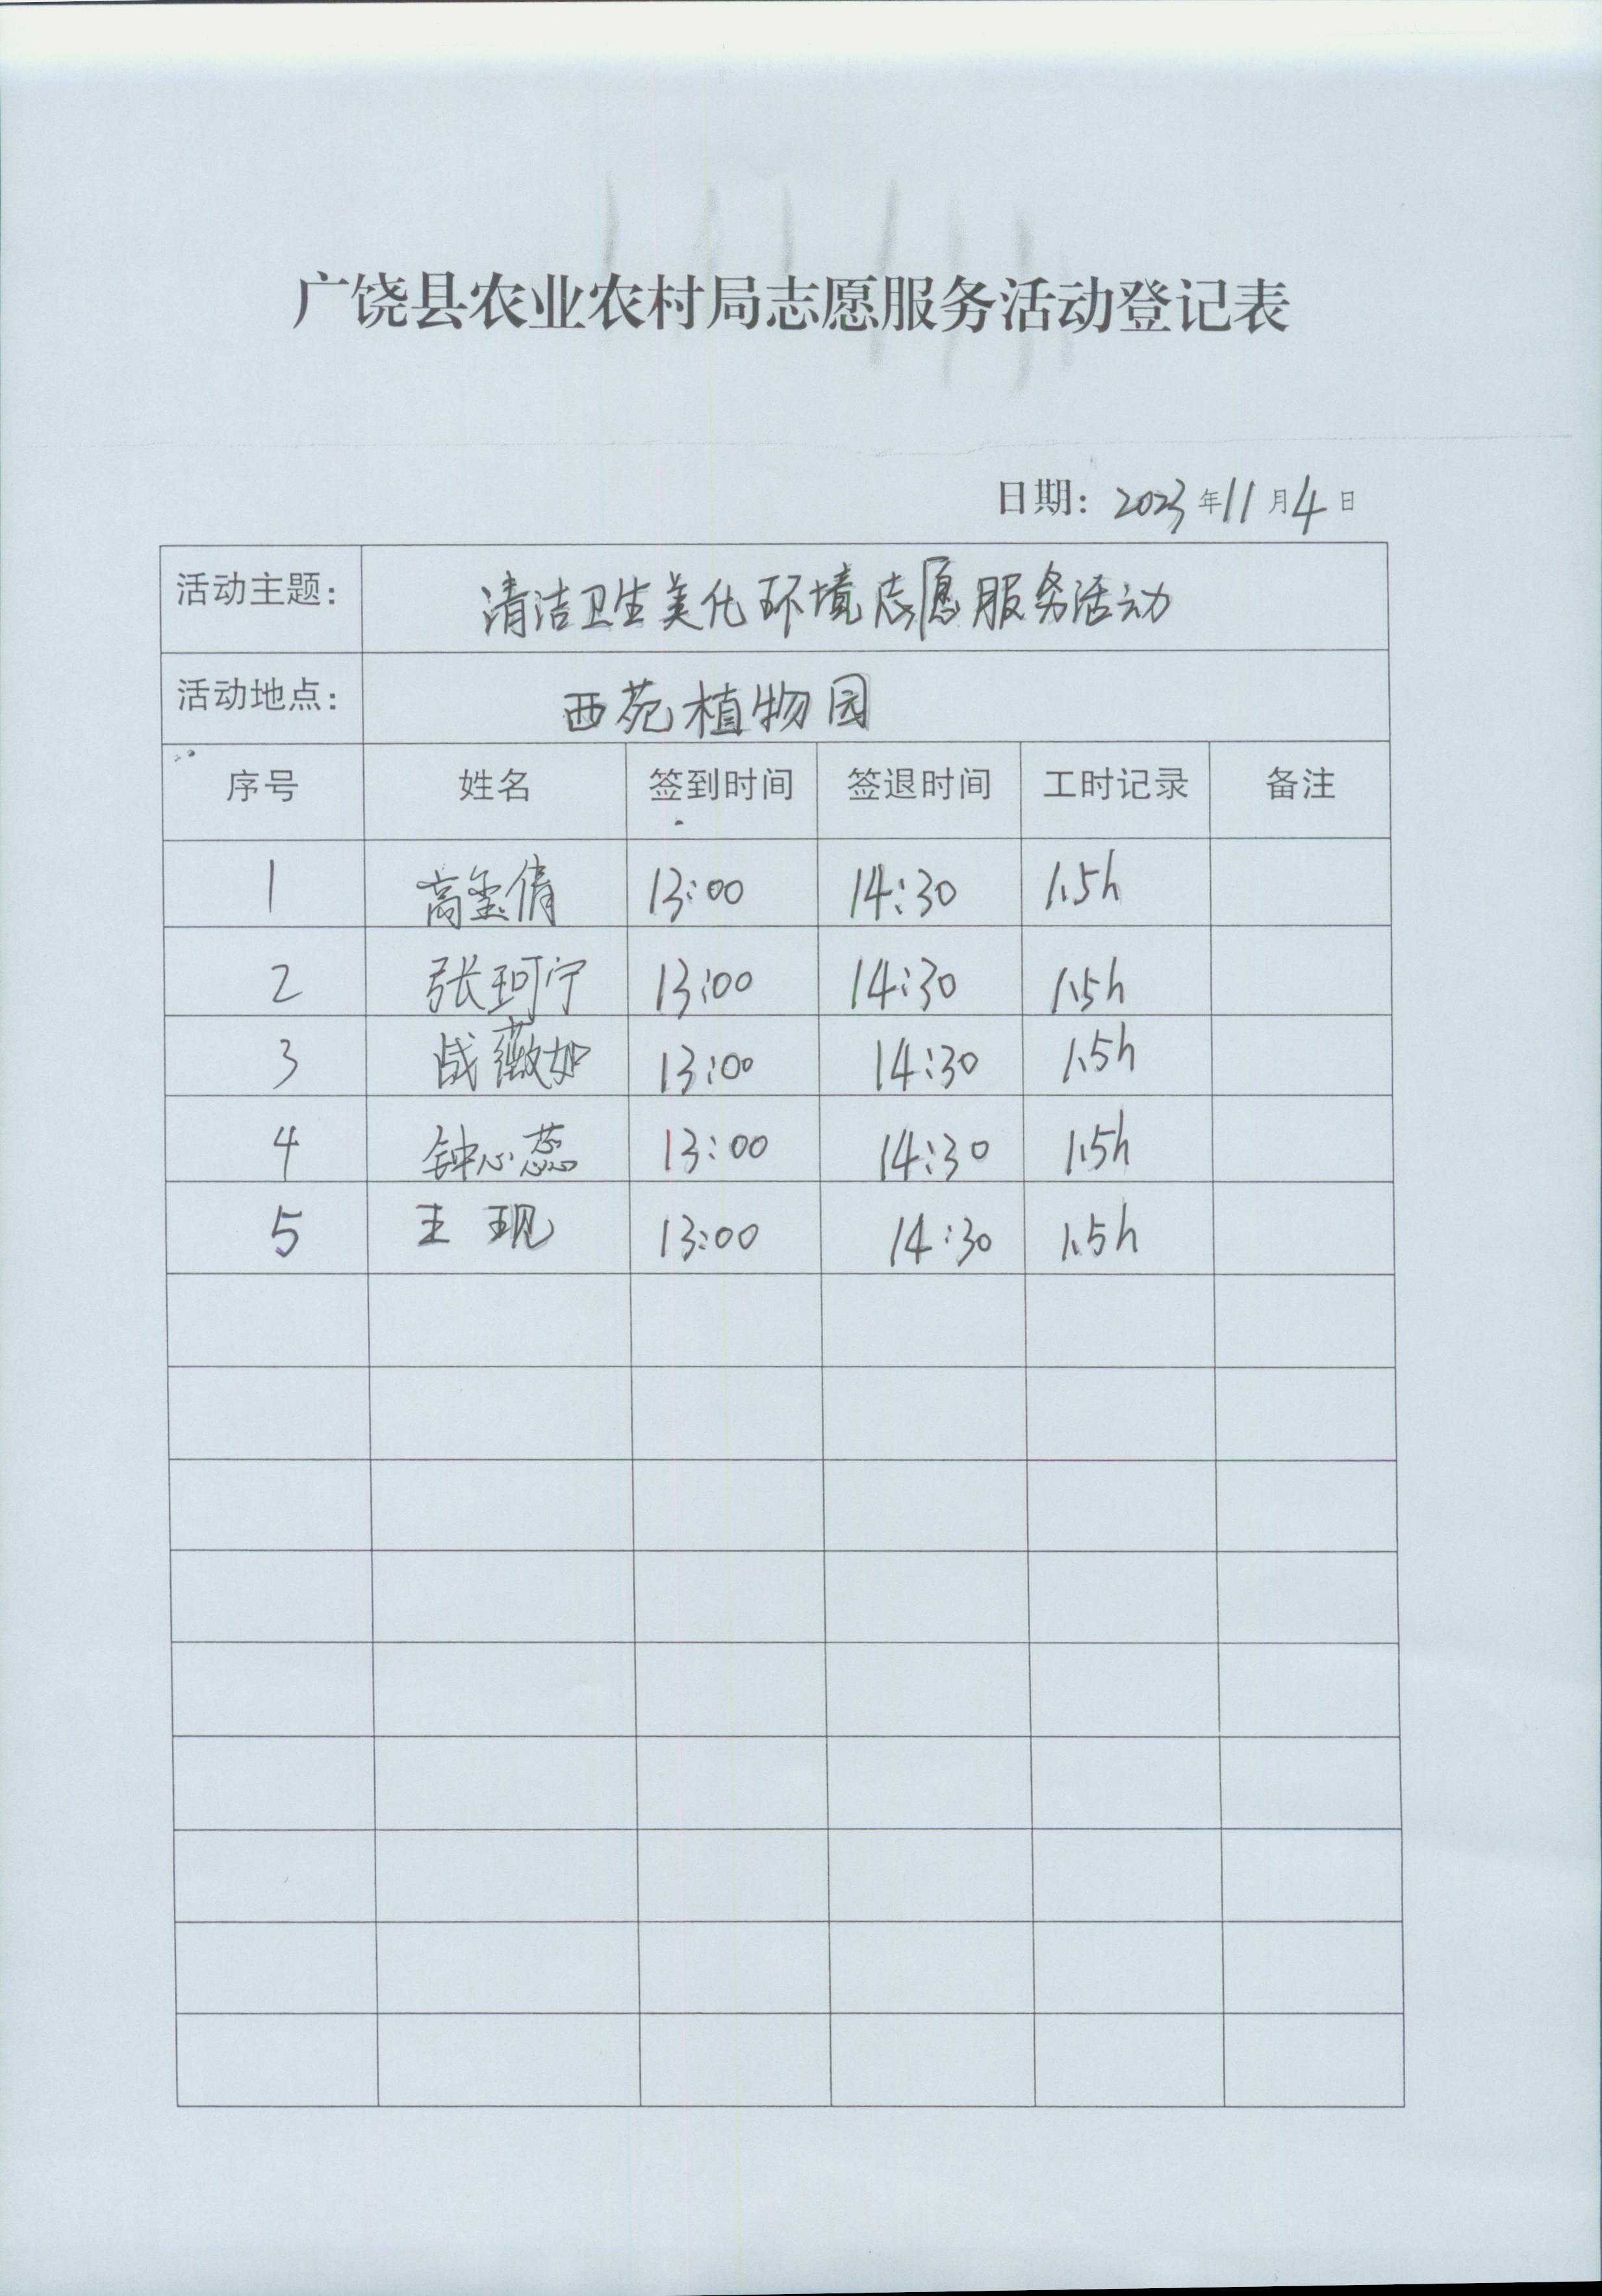 广饶县农业农村局志愿服务活动登记表
日期: 2023年11月4日
活动主题: 清洁卫生美化环境志愿服务活动
活动地点: 西苑植物园
序号 姓名 签到时间 签退时间 工时记录 备注
1 高玺倩 13:00 14:30 1.5h
2 张珂宁 13:00 14:30 1.5h
3 战薇如 13:00 14:30 1.5h
4 钟心蕊 13:00 14:30 1.5h
5 王现 13:00 14:30 1.5h